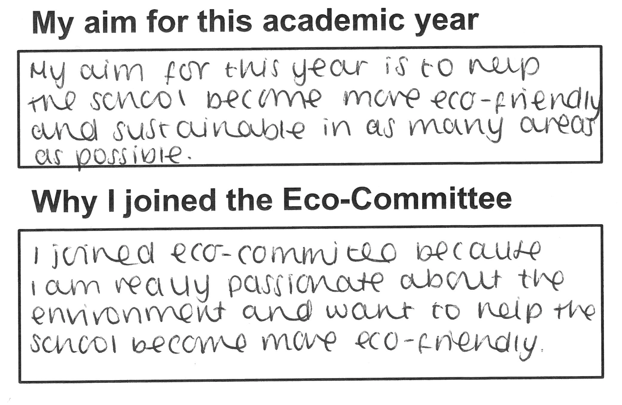 My aim for this academic year
My aim for this year is to help
the school become more eco-friendly
and sustainable in as many areas
as possible.
Why I joined the Eco-Committee
I joined eco-committee because
I am really passionate about the
environment and want to help the
school become more eco-friendly.